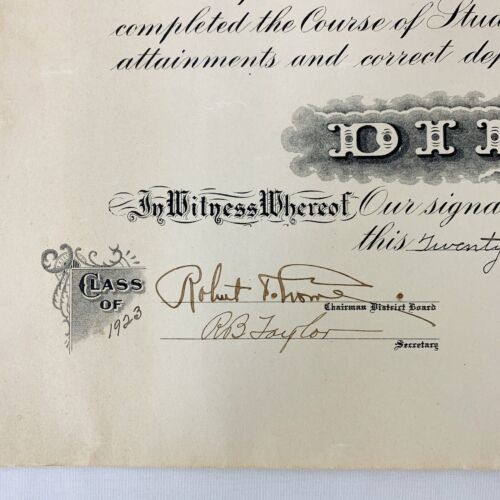 completed the Course of Stud
attainments and correct dep
DI
In Witness Whereof Our signa
this Twenty
CLASS
OF
1923
Robert
Chairman District Board
RB Taylor
Secretary